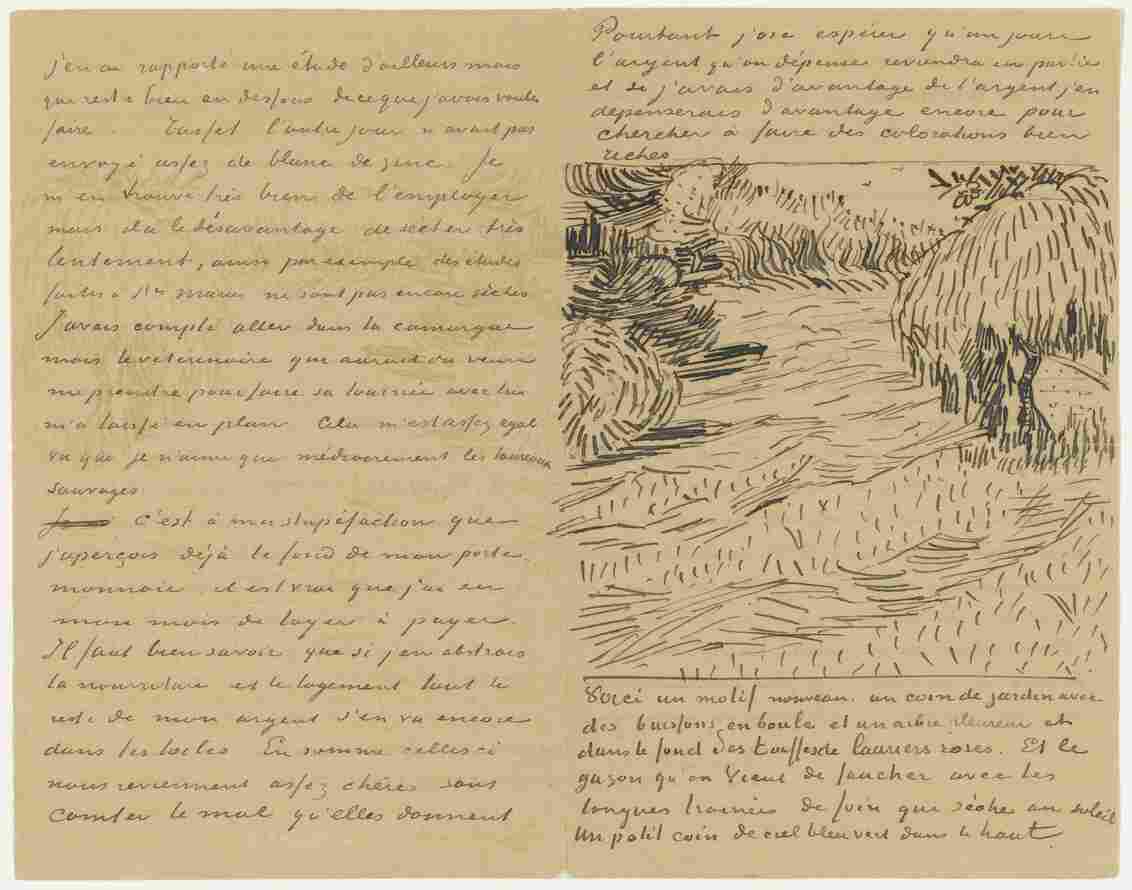 j'en ai rapporté une étude d'ailleurs mais
qui reste bien en dessous de ce que j'avais voulu
faire. Tasset l'autre jour n'avait pas
envoyé assez de blanc de zinc. Je
m'en trouve très bien de l'employer
mais il a le désavantage de sécher très
lentement, ainsi par exemple des études
faites à Stes maries ne sont pas encore sèches
J'avais compté aller dans la camargue
mais le vétérinaire qui aurait du venir
me prendre pour faire sa tournée avec lui
m'a laissé en plan. Cela m'est assez égal
vu que je n'aime que médiocrement les taureaux
sauvages.
c'est à ma stupéfaction que
j'aperçois déjà le fond de mon porte
monnaie, il est vrai que j'ai eu
mon mois de loyer à payer.
Il faut bien savoir que si j'en abstrais
la nourriture et le logement tout le
reste de mon argent s'en va encore
dans les toiles. En somme celles ci
nous reviennent assez chères sans
comter le mal qu'elles donnent
Pourtant j'ose espérer qu'un jour
l'argent qu'on dépense reviendra en partie
et si j'avais d'avantage de l'argent j'en
depenserais d'avantage encore pour
chercher à faire des colorations bien
riches
Voici un motif nouveau. un coin de jardin avec
des buissons en boule et un arbre pleureur et
dans le fond des touffes de lauriers roses. Et le
gazon qu'on vient de faucher avec les
longues trainées de foin qui sèche au soleil
Un petit coin de ciel bleu vert dans le haut.